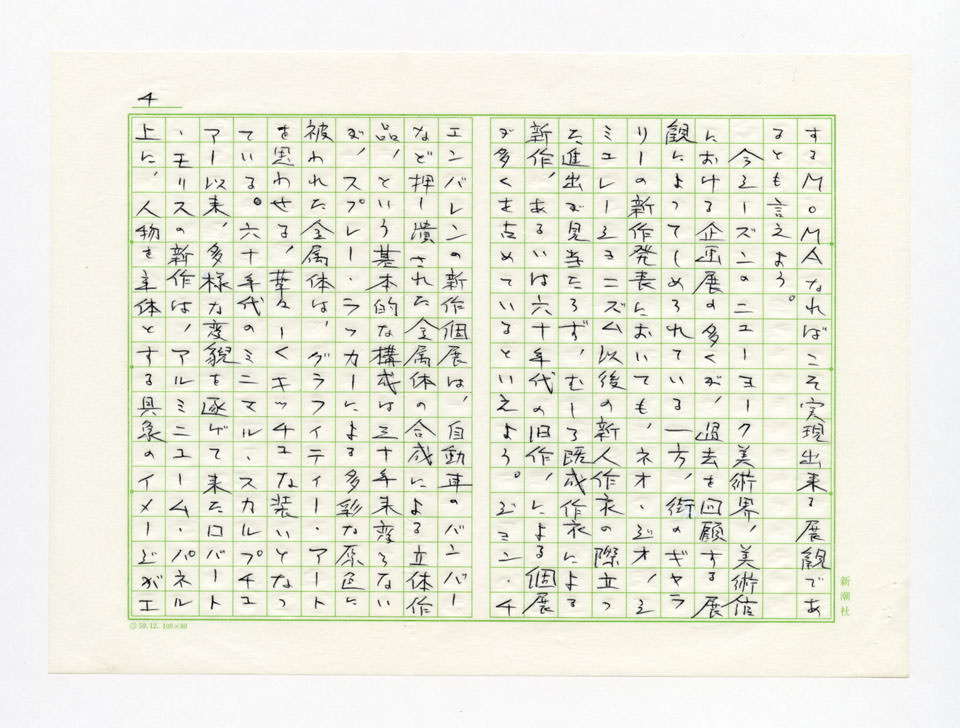 4
するMOMAなればこそ実現出来る展観であ
るとも言えよう。
今シーズンのニューヨーク美術界、美術館
における企画展の多くが、過去を回顧する展
観によってしめられている一方、街のギャラ
リーの新作発表においても、ネオ・ジオ、シ
ミュレーショニズム以後の新人作家の際立っ
た進出が見当たらず、むしろ既成作家による
新作、あるいは六十年代の旧作、による個展
が多くを占めているといえよう。ジョン・チ
エンバレンの新作個展は、自動車のバンパー
など押し潰された金属体の合成による立体作
品、という基本的な構成は三十年来変らない
が、スプレー・ラッカーによる多彩な原色に
被われた金属体は、グラフィティー・アート
を思わせる、華々しくキッチュな装いとなっ
ている。六十年代のミニマル・スカルプチュ
アー以来、多様な変貌を逐げて来たロバート
・モリスの新作は、アルミニューム・パネル
上に、人物を主体とする具象のイメージがエ
新潮社
59.12. 100×80